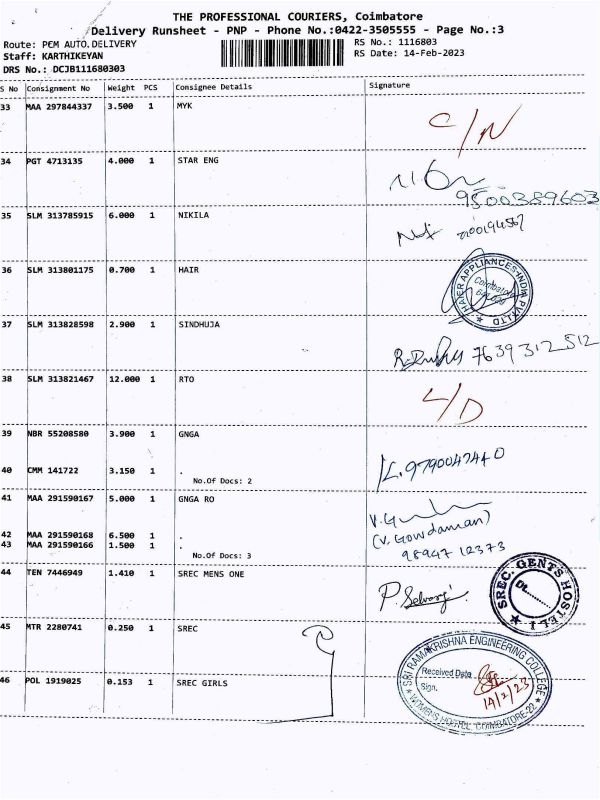 THE PROFESSIONAL COURIERS, Coimbatore
Delivery Runsheet - PNP - Phone No.:0422-3505555 - Page No.:3
Route: PEM AUTO.DELIVERY
RS No.: 1116803
Staff: KARTHIKEYAN
RS Date: 14-Feb-2023
DRS No.: DCJB111680303
S No Consignment No Weight PCS Consignee Details Signature
33 MAA 297844337 3.500 1 MYK
C/N
34 PGT 4713135 4.000 1 STAR ENG
9500389603
35 SLM 313785915 6.000 1 NIKILA
36 SLM 313801175 0.700 1 HAIR
HAIER APPLIANCES-INDIA PVT LTD
Coimbatore
37 SLM 313828598 2.900 1 SINDHUJA
7639312512
38 SLM 313821467 12.000 1 RTO
L/D
39 NBR 55208580 3.900 1 GNGA
40 CMM 141722 3.150 1 .
No.Of Docs: 2
41 MAA 291590167 5.000 1 GNGA RO
42 MAA 291590168 6.500 1 .
43 MAA 291590166 1.500 1 .
No.Of Docs: 3
(V. Gowdaman)
98947 12373
44 TEN 7446949 1.410 1 SREC MENS ONE
P. Selvaraj
SREC. GENTS HOSTEL I
Dt.......
45 MTR 2280741 0.250 1 SREC
46 POL 1919025 0.153 1 SREC GIRLS
SRI RAMAKRISHNA ENGINEERING COLLEGE
Received Date
Sign.
14/2/23
WOMEN'S HOSTEL, COIMBATORE-22